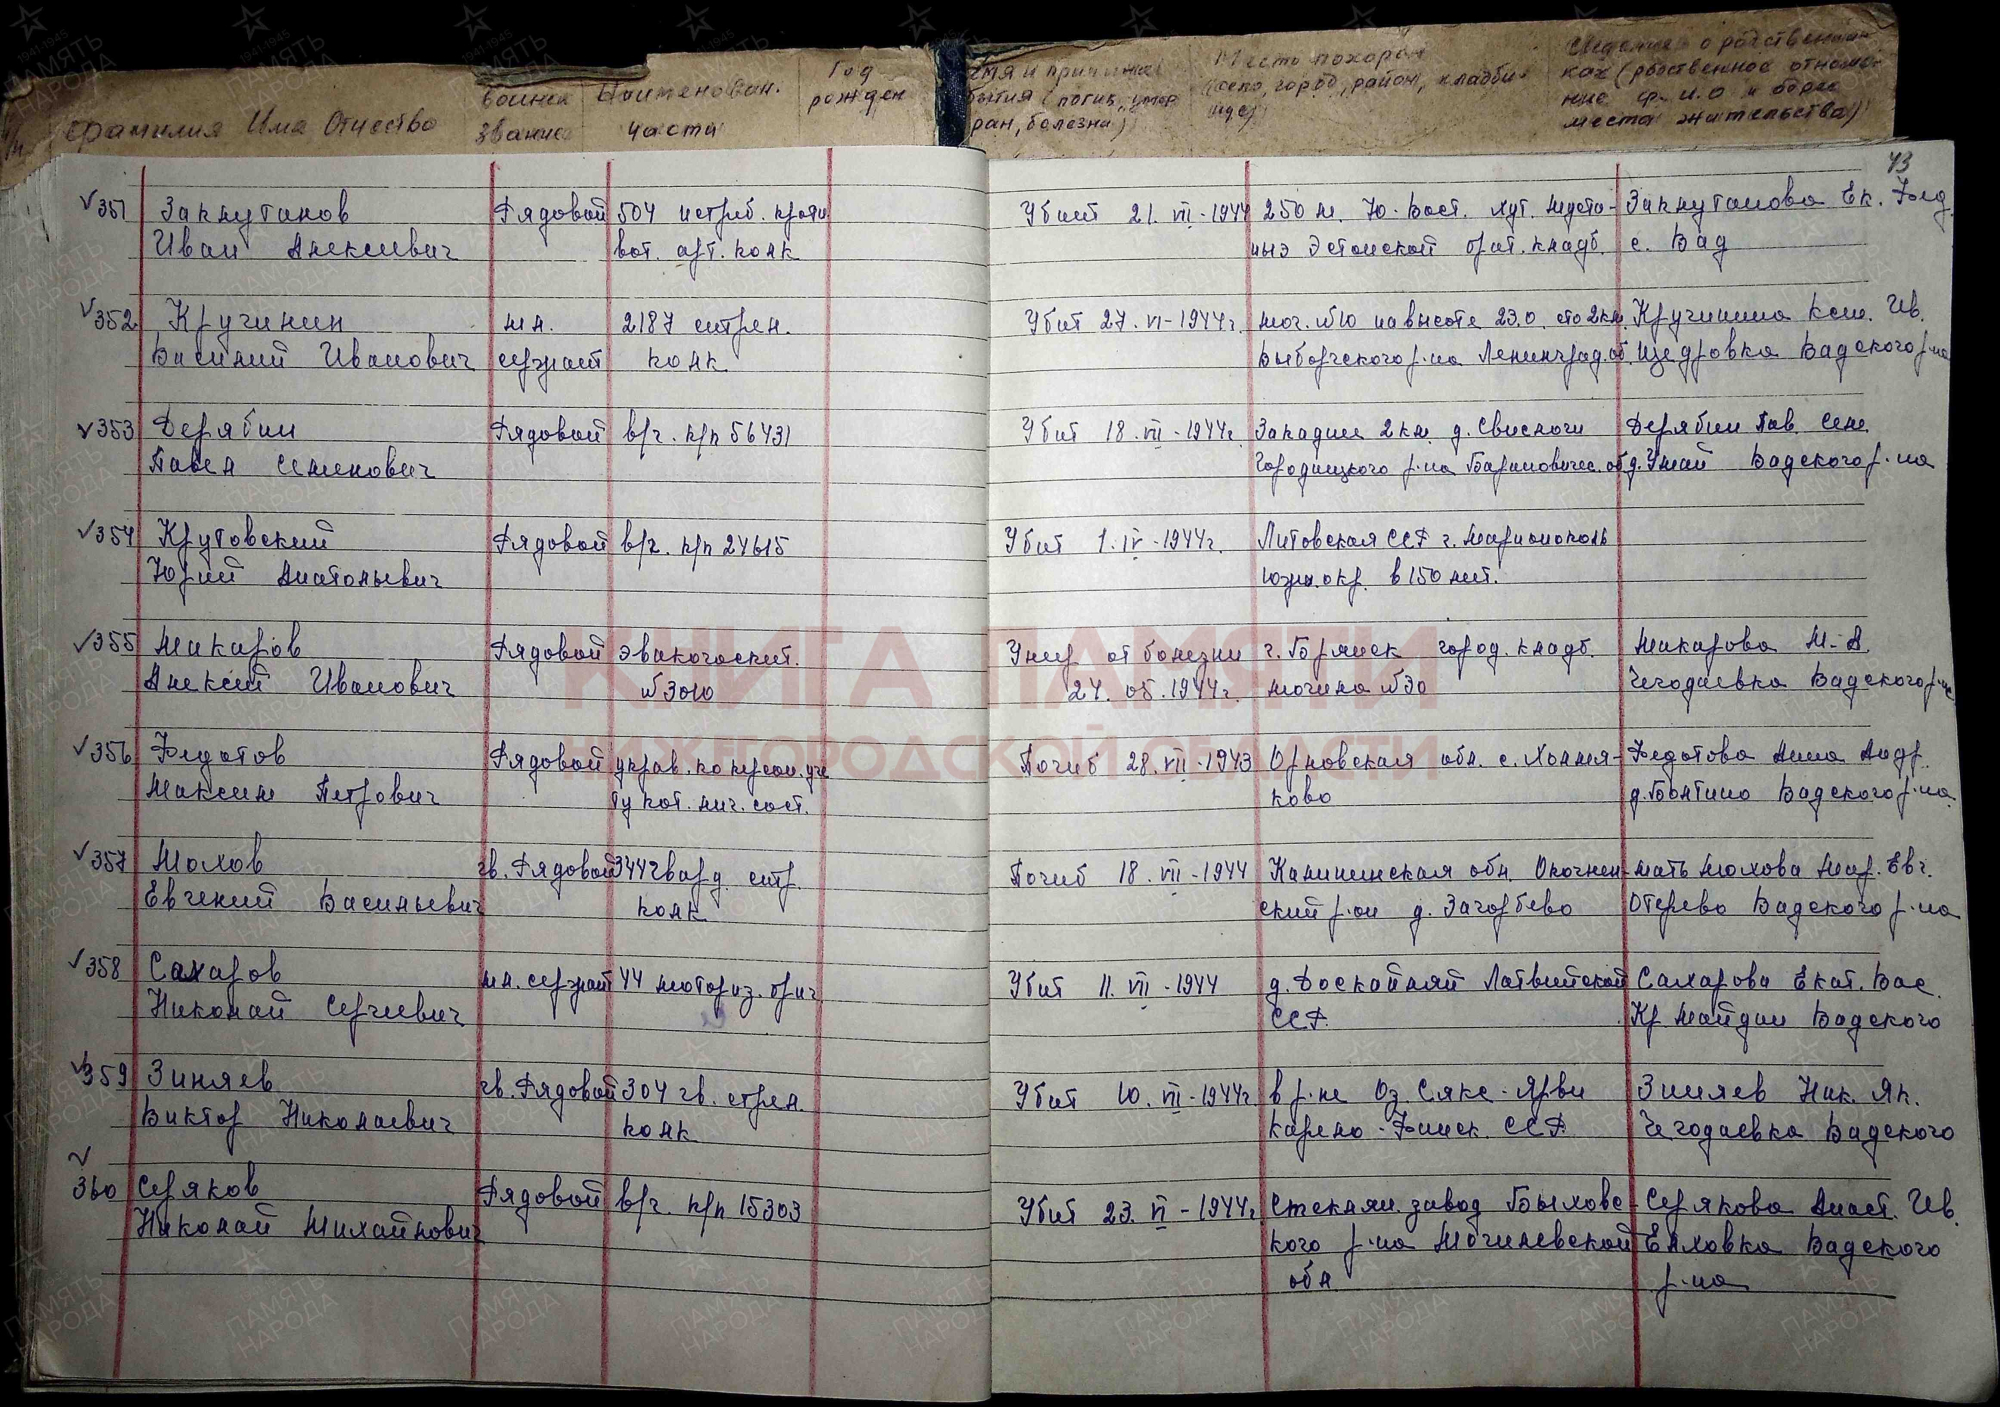 Фамилия Имя Отчество
воинск звание
Наименован. части
Год рожден
(погиб, умер
ран, болезни)
Место похорон
(село, город, район, кладби-
ще)
Сведения о родственни-
ках (родственное отноше-
ние ф.и.о и адрес
места жительства)
43
351 Закнутанов Рядовой 504 истриб. проти Убит 21. VII - 1944 250 м. Ю. Вост. хут. Муста- Закнутанова Ек. Фед.
Иван Алексеевич вот. арт. полк ныэ Эстонской брат. кладб. с. Вад
352 Кручинин мл. 2187 стрел. Убит 27. VI - 1944г. мог. №10 на высоте 23.0. сто 2км. Кручинина Ксен. Ив.
Василий Иванович сержант полк Выборгского р-на Ленинград. об. Щедровка Вадского р-на
353 Дерябин Рядовой в/ч. п/п 56431 Убит 18. VII - 1944г. Западнее 2км. д. Свислочи Дерябин Пав. Сем.
Павел Семенович Городищского р-на Баранович. об д. Умай Вадского р-на
354 Крутовский Рядовой в/ч. п/п 24615 Убит 1. IV - 1944г. Литовская ССР г. Мариополь
Юрий Анатольевич южн. окр. в 150 мет.
355 Макаров Рядовой эвакогоспит. Умер от болезни г. Брянск город. кладб. Макарова М. А.
Алексей Иванович №3010 24. 05. 1944г. могила №30 Чегодаевка Вадского р-на
356 Федотов Рядовой управ. по персон. уче Погиб 28. VII - 1943 Орловская обл. с. Холмя- Федотова Анна Андр.
Максим Петрович ту пот. нач. сост. ково д. Болтино Вадского р-на
357 Молов гв. Рядовой 344 гвард. стр. Погиб 18. VII - 1944 Калининская обл. Опочнен- мать Молова Мар. Евг.
Евгений Васильевич полк ский р-он д. Загорбево Отерево Вадского р-на
358 Сахаров мл. сержант 44 моториз. бриг Убит 11. VII - 1944 д. Доскайляй Латвийской Сахарова Екат. Вас.
Николай Сергеевич ССР. Кр Майдан Вадского
359 Зиняев гв. Рядовой 304 гв. стрел. Убит 10. VII - 1944г. в р-не Оз. Сякс-Ярви Зиняев Ник. Як.
Виктор Николаевич полк Карело-Финск. ССР Чегодаевка Вадского
360 Серяков Рядовой в/ч. п/п 15303 Убит 23. VI - 1944г. Стеклян. завод Быховс- Серякова Анаст. Ив.
Николай Михайлович кого р-на Могилевской Елховка Вадского
обл р-на
КНИГА ПАМЯТИ
НИЖЕГОРОДСКОЙ ОБЛАСТИ
ПАМЯТЬ НАРОДА
1941-1945